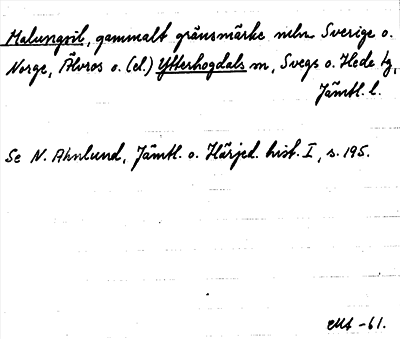 Malungsil, gammalt gränsmärke mln Sverige o.
Norge, Älvros o. (el.) Ytterhogdals sn, Svegs o. Hede tg,
Jämtl. l.
Se N. Ahnlund, Jämtl. o. Härjed. hist. I, s. 195.
-61.